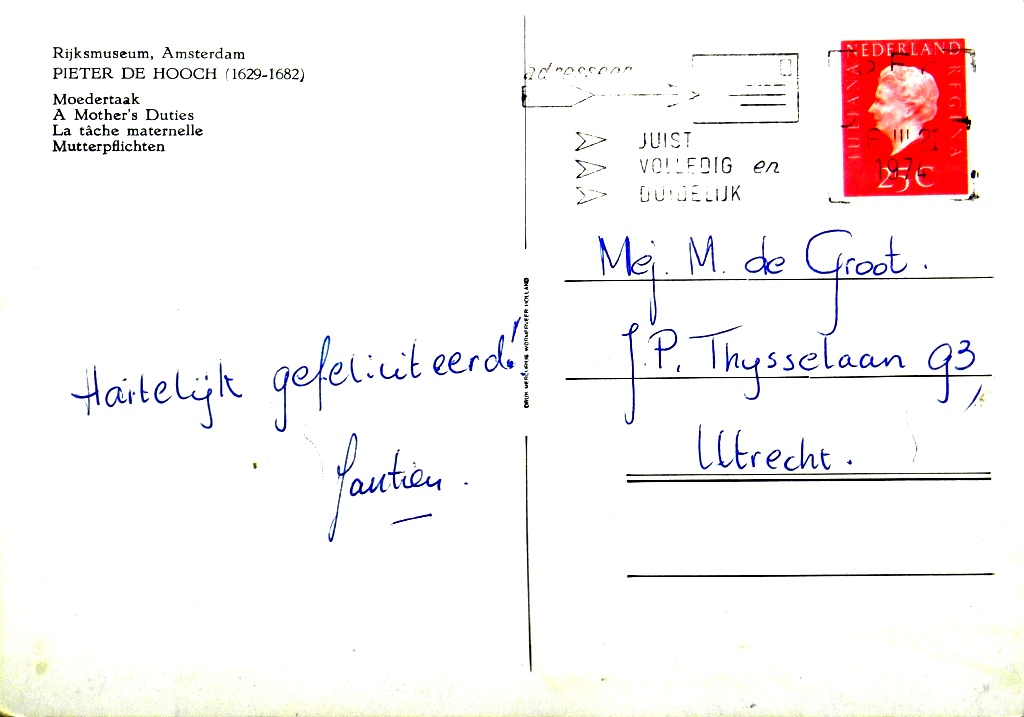 Rijksmuseum, Amsterdam
PIETER DE HOOCH (1629-1682)
Moedertaak
A Mother's Duties
La tâche maternelle
Mutterpflichten
Hartelijk gefeliciteerd!
Jantien.
DRUK MERCURIUS WORMERVEER HOLLAND
adresseer
JUIST
VOLLEDIG en
DUIDELIJK
NEDERLAND
JULIANA REGINA
1974
25 C
Mej. M. de Groot.
J.P. Thysselaan 93,
Utrecht.